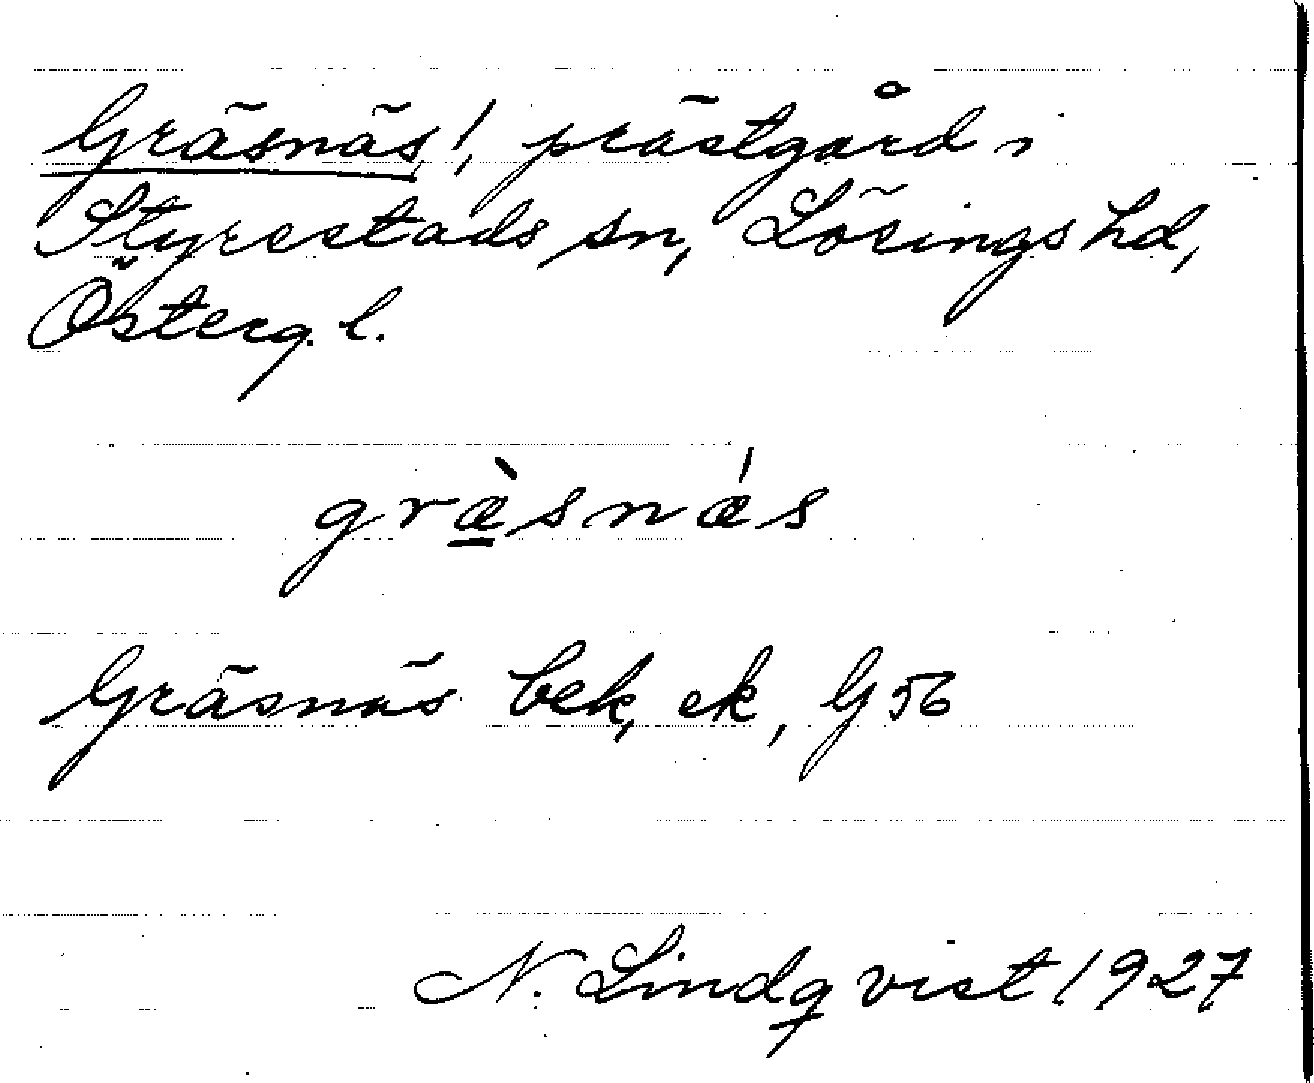 Gräsnäs!, prästgård i
Styrestads sn, Lösings hd,
Österg. l.
græ̀snǽs
Gräsnäs bek, ek, G 56
N. Lindqvist 1927